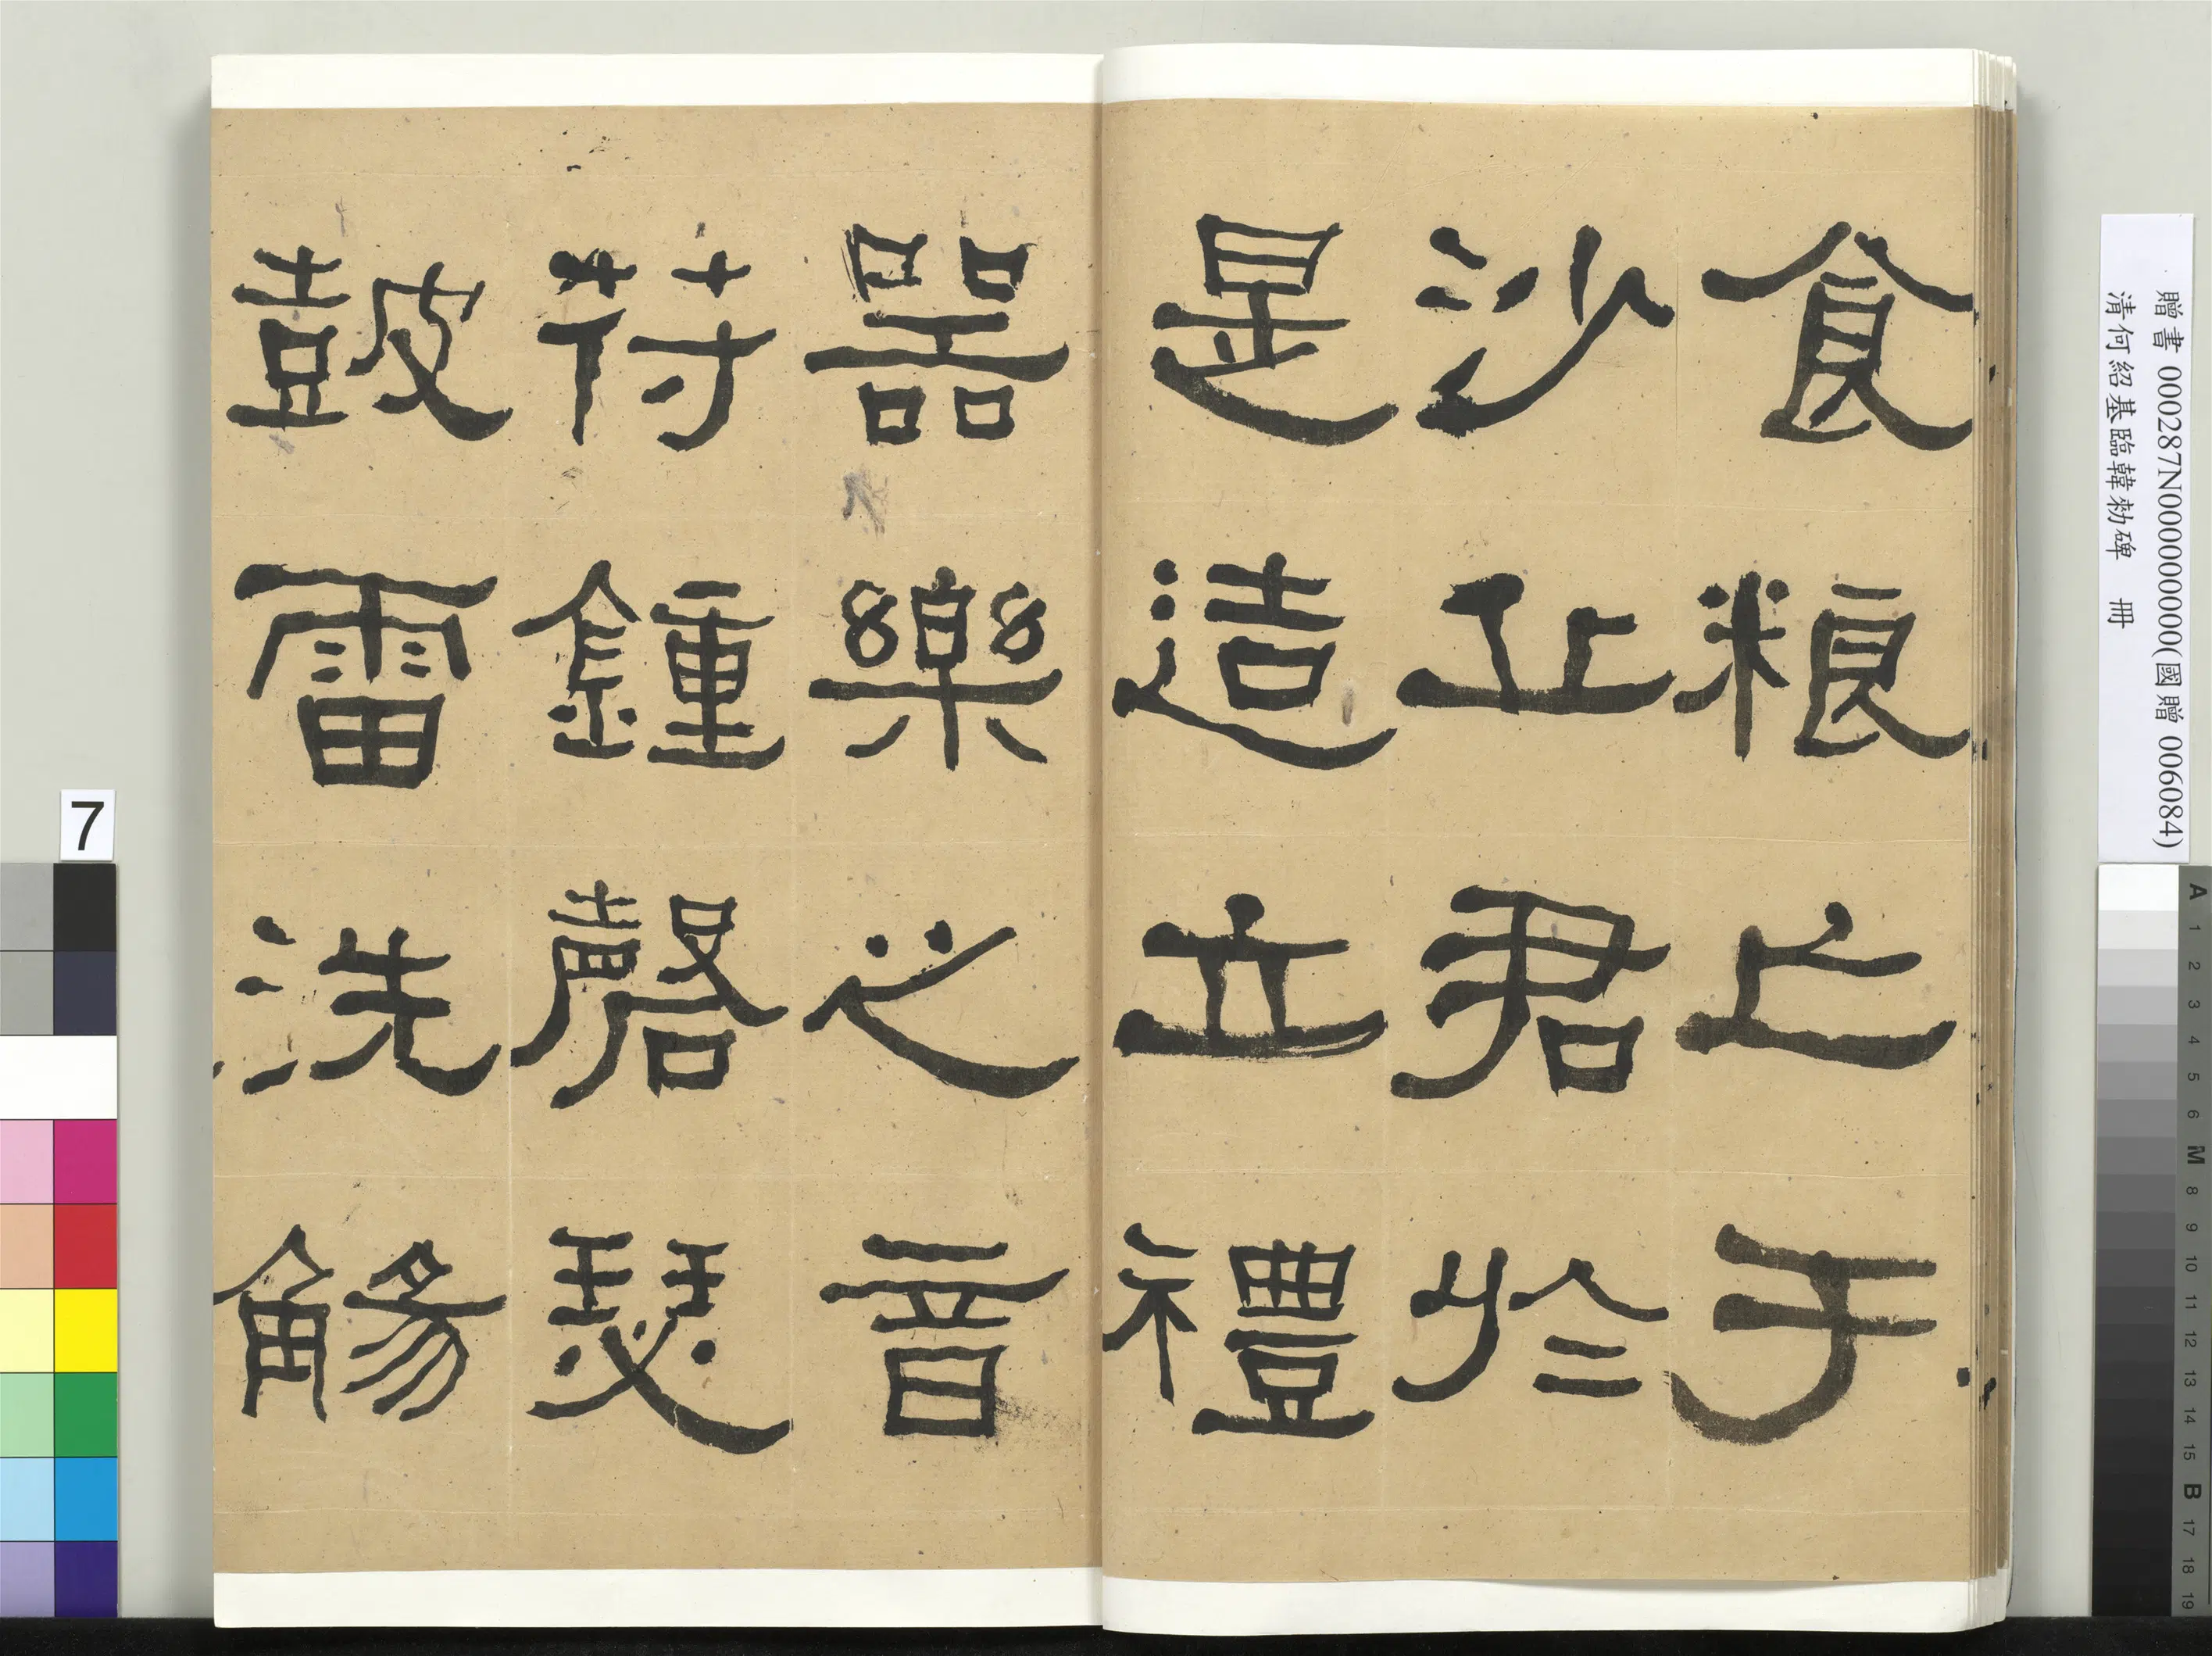 食粮亡于
沙丘君於
是造立禮
器樂之音
符鍾磬瑟
皷雷洗觴
贈書 000287N000000000(國贈 006084)
清何紹基臨韓勑碑 冊
7
A 1 2 3 4 5 6 M 8 9 10 11 12 13 14 15 B 17 18 19